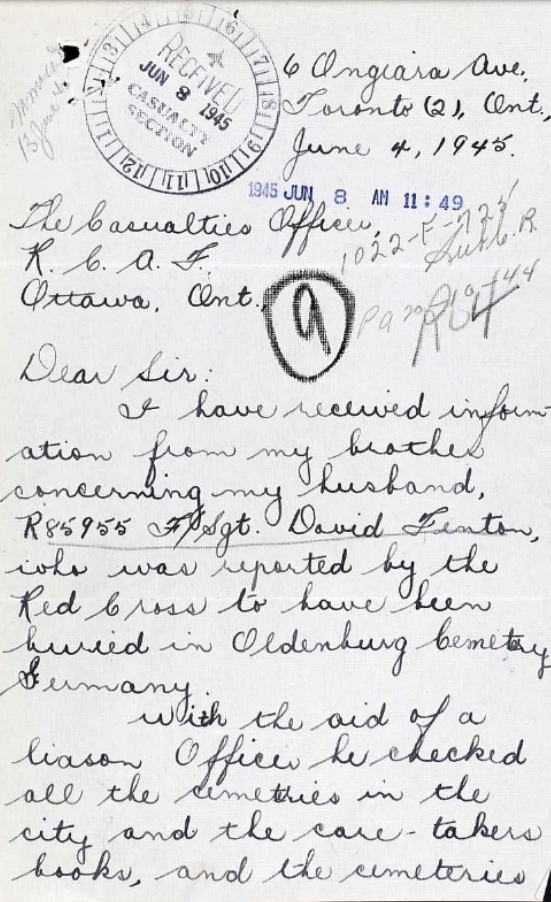 RECEIVED
JUN 8 1945
CASUALTY
SECTION
6 Ongiara Ave.,
Toronto (2), Ont.,
June 4, 1945.
1945 JUN 8 AM 11:49
The Casualties Officer,
R. C. A. F.
Ottawa, Ont.,
9
Dear Sir:
I have received inform-
ation from my brother
concerning my husband,
R85955 F/Sgt. David Fenton,
who was reported by the
Red Cross to have been
buried in Oldenburg Cemetery
Germany.
With the aid of a
liason Officer he checked
all the cemetries in the
city and the care-takers
books, and the cemeteries